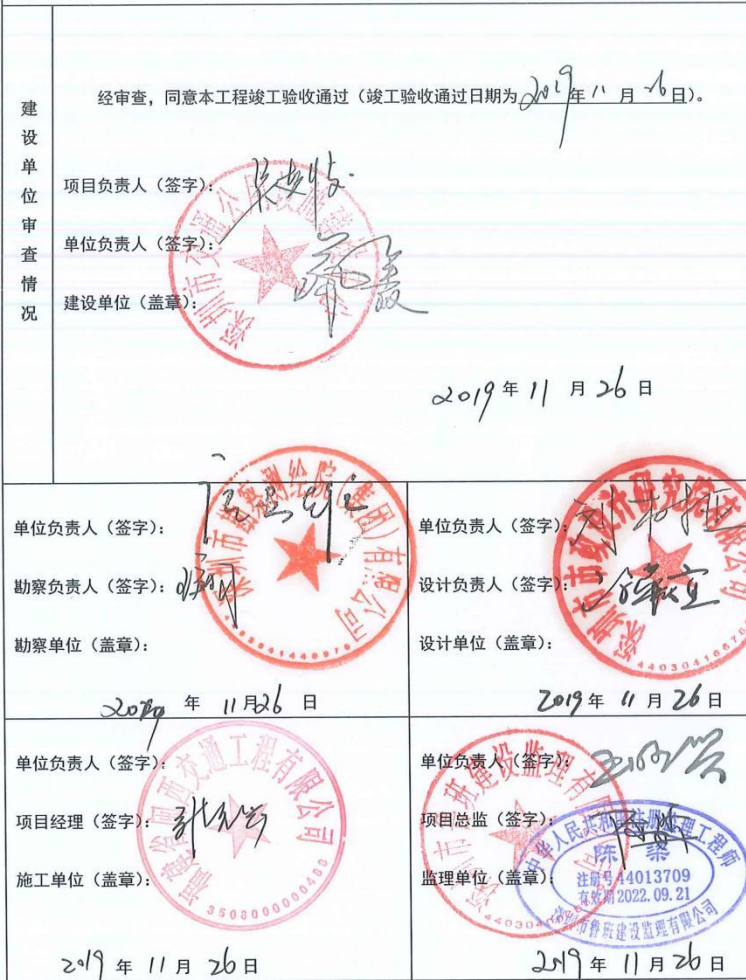 建设单位审查情况
经审查，同意本工程竣工验收通过（竣工验收通过日期为2019年11月26日）。
项目负责人（签字）：
单位负责人（签字）：
建设单位（盖章）：
2019年11月26日
单位负责人（签字）：
勘察负责人（签字）：
勘察单位（盖章）：
深圳市勘察测绘院（集团）有限公司
2019年11月26日
单位负责人（签字）：
设计负责人（签字）：
设计单位（盖章）：
深圳市市政设计研究院有限公司
2019年11月26日
单位负责人（签字）：
项目经理（签字）：
施工单位（盖章）：
福建省闽西交通工程有限公司
2019年11月26日
单位负责人（签字）：
项目总监（签字）：
监理单位（盖章）：
中华人民共和国注册监理工程师
注册号44013709
有效期2022.09.21
深圳市鲁班建设监理有限公司
2019年11月26日